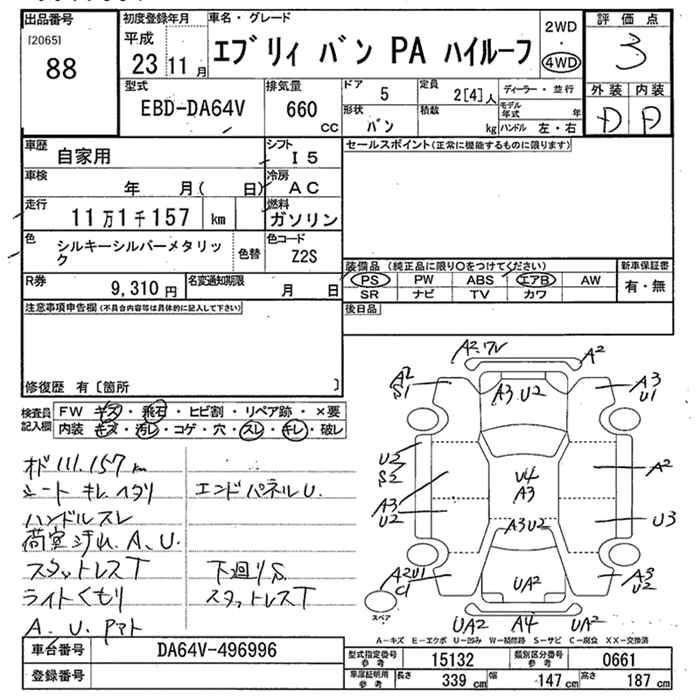 出品番号
[2065]
88
初度登録年月
平成
23 11 月
車名・グレード
エブリィ バン PA ハイルーフ
2WD
・
4WD
評価点
3
外装 内装
D D
型式
EBD-DA64V
排気量
660
cc
ドア
5
定員
2[4]人
ディーラー・並行
モデル年式 年
形状
バン
積載
kg
ハンドル 左・右
車歴
自家用
シフト
I 5
セールスポイント(正常に機能するものに限ります)
車検
年 月( 日)
冷房
AC
走行
11万1千157 km
燃料
ガソリン
色
シルキーシルバーメタリック
色替
色コード
Z2S
装備品 (純正品に限り〇をつけてください)
新車保証書
PS PW ABS エアB AW
有・無
SR ナビ TV カワ
R券
9,310 円
名変通知期限
月 日
後日品
注意事項申告欄(不具合内容等は具体的に記入して下さい)
修復歴 有〔箇所 〕
検査員記入欄
FW キズ・飛石・ヒビ割・リペア跡・×要
内装 キズ・汚レ・コゲ・穴・スレ・キレ・破レ
オド 111.157km
シート キレ ヘタリ
エンドパネルU.
ハンドルスレ
荷室 汚れ.A、U.
スタットレスT
下廻りS
ライトくもり
スタットレスT
A. U. アマト
A2 ワレ
A2
A2
S1
A3 U2
A3
U1
U2
S2
U4
A3
A2
A3
U2
A3U2
U3
A2U1
C1
UA2
A3
U2
スペア
UA2
A4
UA2
A-キズ E-エクボ U-凹み W-補修跡 S-サビ C-腐食 XX-交換済
車台番号
DA64V-496996
型式指定番号
参考
15132
類別区分番号
参考
0661
登録番号
車庫証明用
参考
長さ
339 cm
幅
147 cm
高さ
187 cm